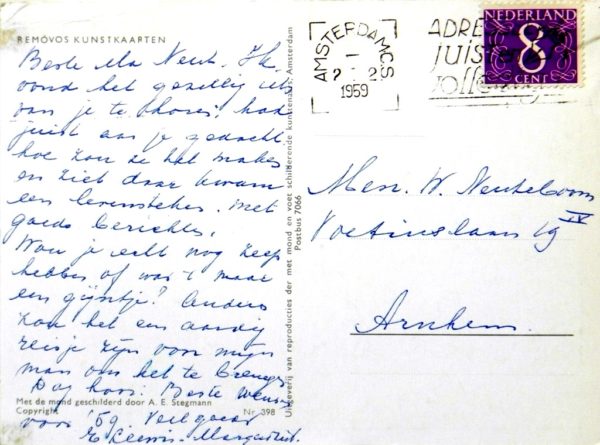 REMOVOS KUNSTKAARTEN
Beste Ma Neut. Ik
vond het gezellig iets
van je te horen! had
juist aan je gedacht
hoe zou ze het maken
en ziet daar kwam
een levensteken. met
goede berichten.
Wou je echt nog zeep
hebben of was 't maar
een gijntje? Anders
zou het een aardig
reisje zijn voor mijn
man om het te brengen
Dag hoor. Beste wens
voor '59. Veel
Margariet.
Met de mond geschilderd door A. E. Stegmann
Copyright
Nr 398
Uitgeverij van reproducties der met mond en voet schilderende kunstenaars Amsterdam
Postbus 7066
AMSTERDAM C.S
1959
ADRE
juist
volle
NEDERLAND
8
CENT
Men. W. Neuteboom
Voetiuslaan 19 IV
Arnhem.